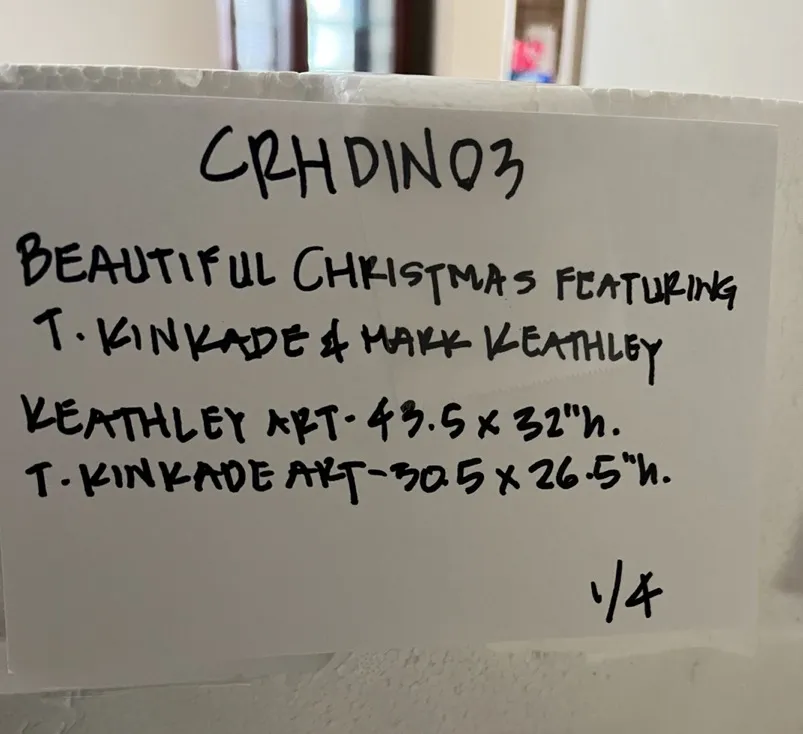 CRHDIN03
BEAUTIFUL CHRISTMAS FEATURING
T. KINKADE & MARK KEATHLEY
KEATHLEY ART- 43.5 x 32"h.
T. KINKADE ART-30.5 x 26.5"h.
1/4